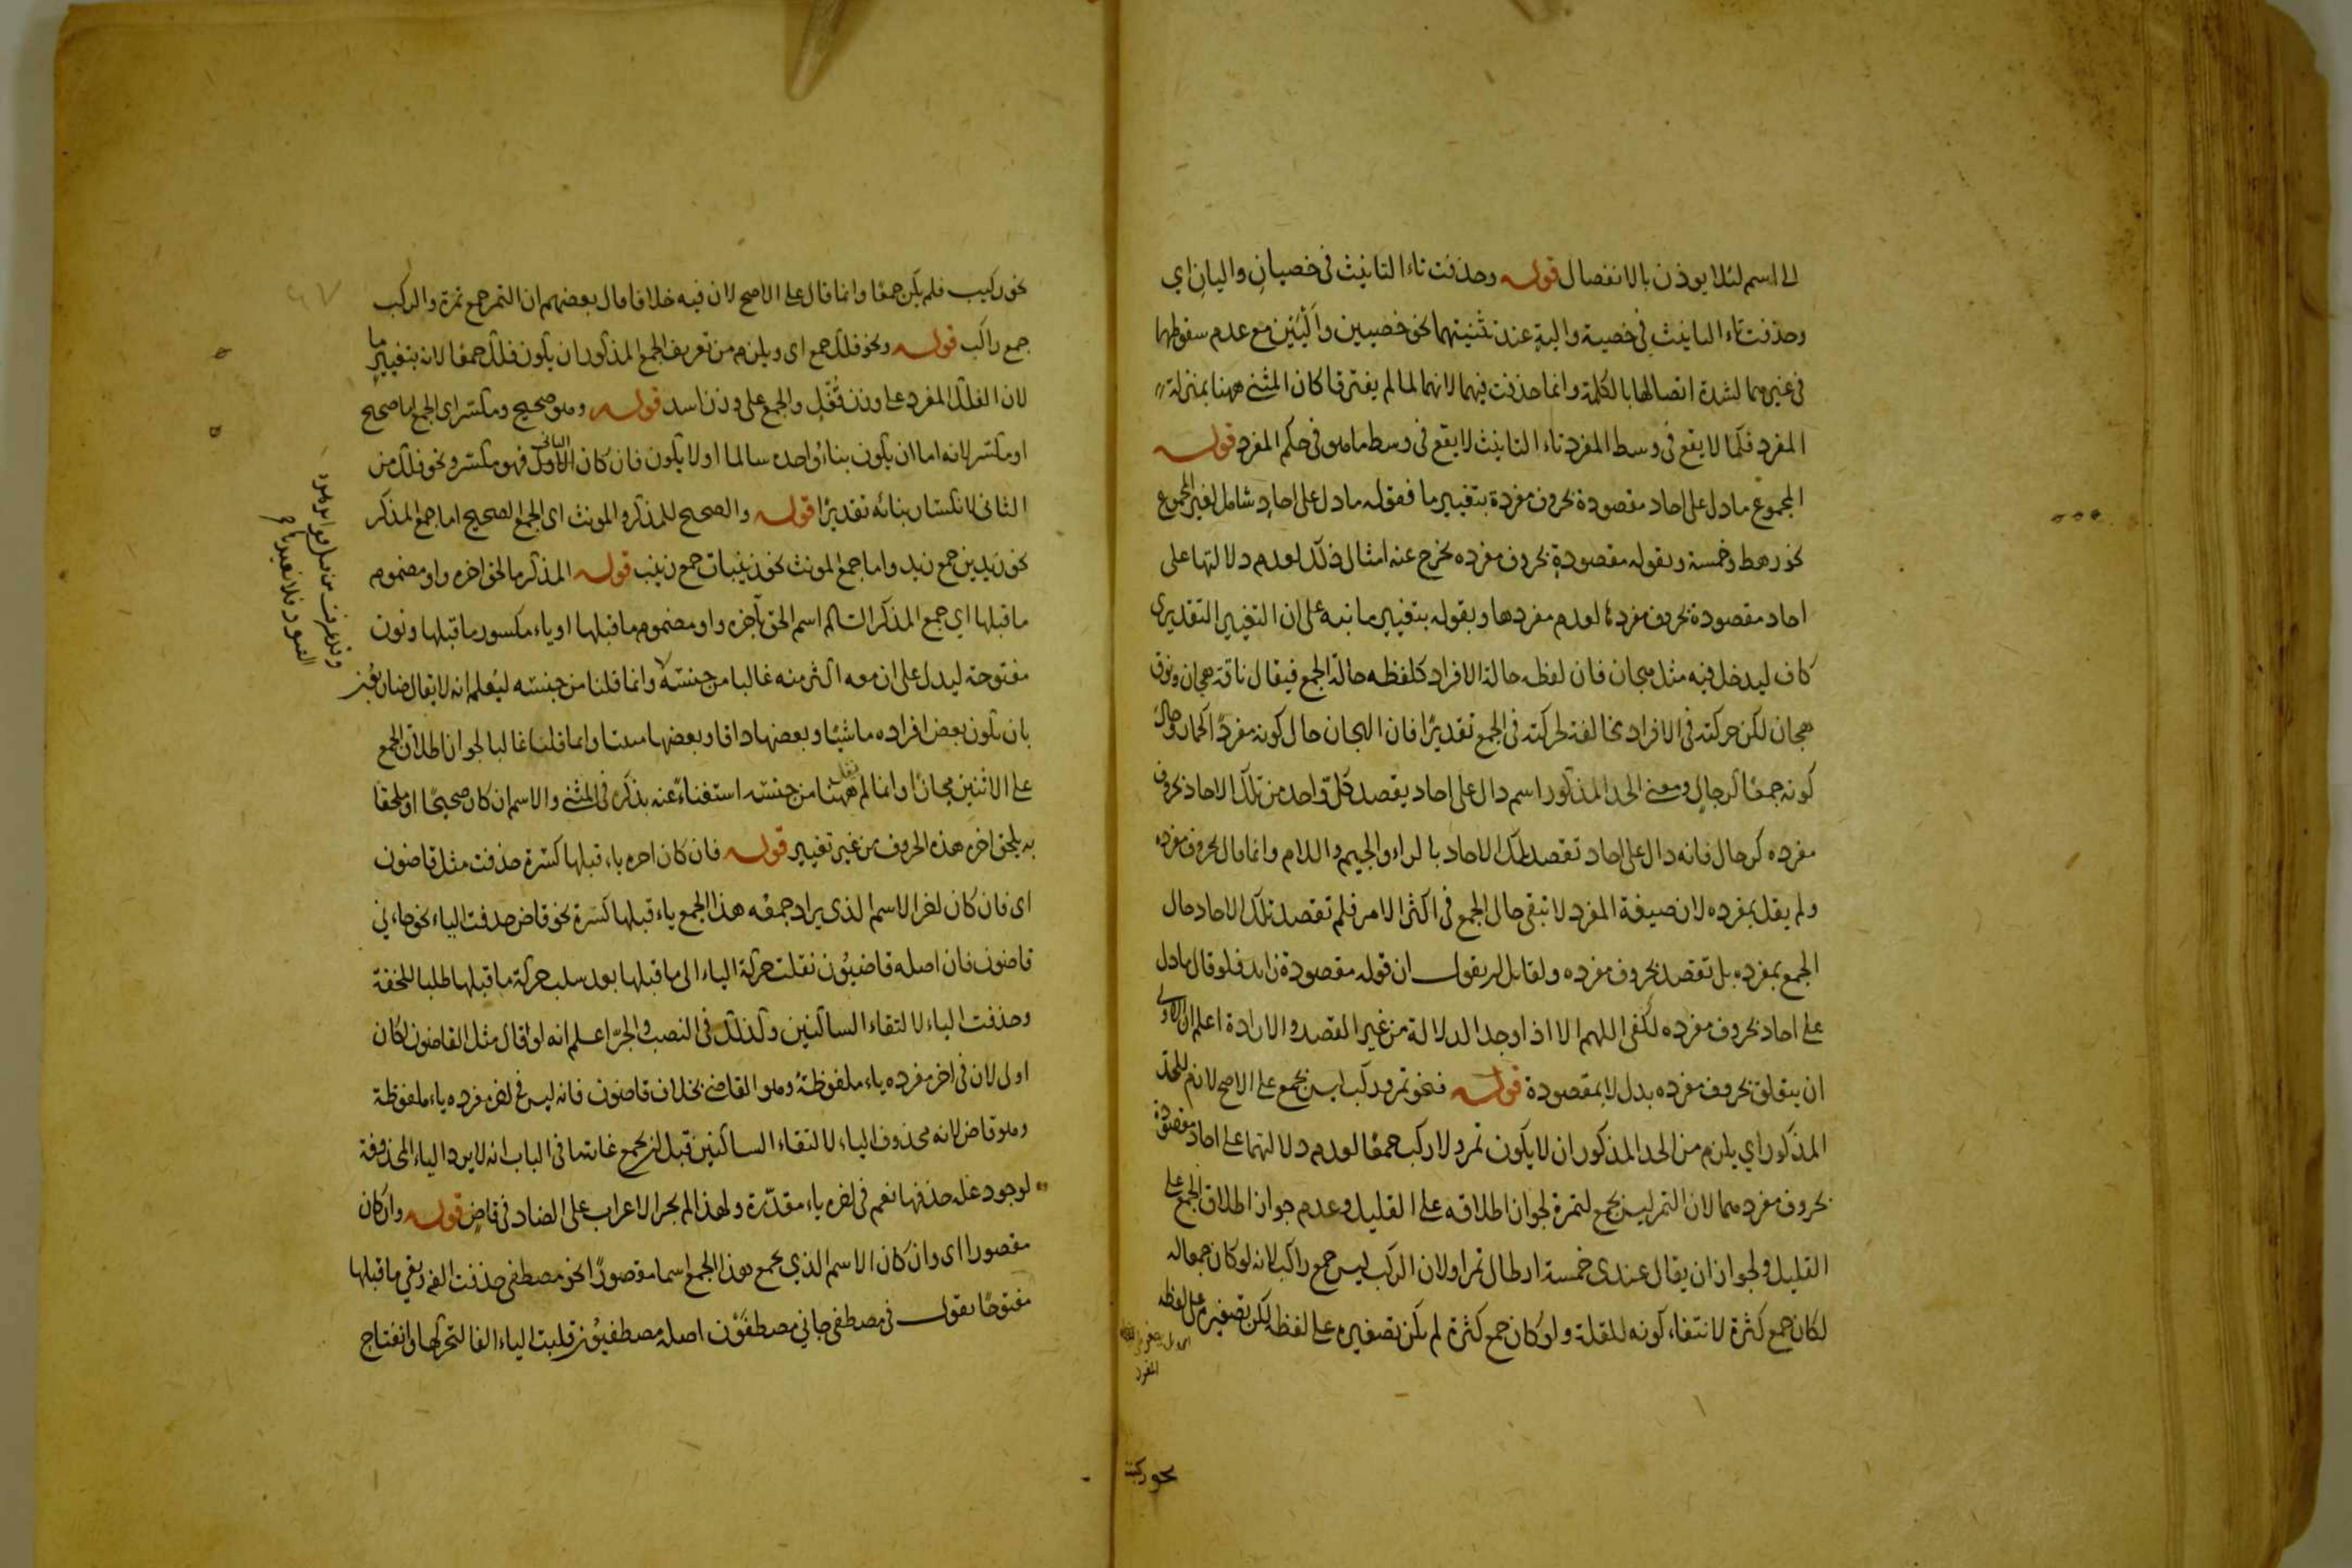 الى اسم لئلا يوذن بالانفصال قوله وحذفت تاء التانيث فى خصيان واليان اي
وحذفت تاء التانيث فى خصية والية عند تثنيتهما نحو خصيين واليين مع عدم سقوطها
فى غيرهما لشدة اتصالها بالكلمة وانما حذفت فيهما لانهما لما لم يفترقا كان المثنى ههنا بمنزلة
المفرد فكما لا يقع فى وسط المفرد تاء التانيث لا يقع فى وسط ما هو فى حكم المفرد قوله
المجموع ما دل على احاد مقصودة بحروف مفردة بتغيير ما فقوله ما دل على احاد شامل لغير المجموع
نحو رهط وخمسة وبقوله مقصودة بحروف مفرده يخرج عنه امثال ذلك لعدم دلالتها على
احاد مقصودة بحروف مفردها لعدم مفردها وبقوله بتغيير ما نبه على ان التغيير التقديرى
كاف ليدخل فيه مثل هجان فان لفظه حالة الافراد كلفظه حالة الجمع فيقال ناقة هجان ونوق
هجان لكن حركته فى الافراد مخالفة لحركته فى الجمع تقديرا فان الهجان حال كونه مفردا كحمار وحال
كونه جمعا كرجال ومعنى الحد المذكور اسم دال على احاد يقصد كل واحد من تلك الاحاد بحروف
مفرده كرجال فانه دال على احاد تقصد تلك الاحاد بالراء والجيم واللام وانما قال بحروف مفرده
ولم يقل بمفرده لان صيغة المفرد لا تبقى حال الجمع فى اكثر الامر فلم تقصد تلك الاحاد حال
الجمع بمفرده بل تقصد بحروف مفرده ولقايل ان يقول ان قوله مقصودة زايد فلو قال ما دل
على احاد بحروف مفرده لكفى اللهم الا اذا وجد الدلالة من غير القصد والارادة اعلم ان الاولى
ان يتعلق بحروف مفرده بدل لا بمقصودة قوله فنحو تمر وركب ليس بجمع على الاصح لازم للحد
المذكور اي يلزم من الحد المذكور ان لا يكون تمر ولا ركب جمعا لعدم دلالتهما على احاد مقصودة
بحروف مفردهما لان التمر ليس بجمع لتمرة لجواز اطلاقه على القليل وعدم جواز اطلاق الجمع على
القليل ولجواز ان يقال عندى خمسة ارطال تمرا ولان الركب ليس جمع راكب لانه لو كان جمعا له
لكان جمع كثرة لانتفاء كونه للقلة ولو كان جمع كثرة لم يكن تصغيره على لفظه لكن تصغيره على لفظه
المفرد
نحو ركيب
نحو ركيب فلم يكن جمعا وانما قال على الاصح لان فيه خلافا قال بعضهم ان التمر جمع تمرة والركب
جمع راكب قوله ونحو فلك جمع اى ويلزم من تعريف الجمع المذكور ان يكون فلك جمعا لانه بتغيير ما
لان الفلك المفرد على وزن قفل والجمع على وزن اسد قوله وهو صحيح ومكسر اى الجمع اما صحيح
او مكسر لانه اما ان يكون بناء واحده سالما او لا يكون فان كان الاول الثانى فهو مكسر ونحو فلك من
الثانى لانكسار بنائه تقديرا قوله والصحيح للمذكر والمونث اى الجمع الصحيح اما جمع المذكر
نحو زيدين جمع زيد واما جمع المونث نحو زينبات جمع زينب قوله المذكر ما لحق اخره واو مضموم
ما قبلها اي جمع المذكر السالم اسم الحق بآخره واو مضموم ما قبلها او ياء مكسور ما قبلها ونون
مفتوحة ليدل على ان معه اكثر منه غالبا من جنسه وانما قلنا من جنسه ليعلم انه لا يقال ضاربون
بان يكون بعض افراده ماشيا وبعضها وبعضها وانما قلنا غالبا لجواز اطلاق الجمع
على الاثنين مجازا وانما لم يقل ههنا من جنسه استغناء عنه بذكره فى المثنى والاسم ان كان صحيحا او ملحقا
به يلحق اخره هذه الحروف من غير تغيير قوله فان كان اخره ياء قبلها كسرة حذفت مثل قاضون
اى فان كان اخر الاسم الذى يراد جمعه هذا الجمع ياء قبلها كسرة نحو قاض حذفت الياء نحو جاءني
قاضون فان اصله قاضيون نقلت حركة الياء الى ما قبلها بعد سلب حركة ما قبلها طلبا للخفة
وحذفت الياء لالتقاء الساكنين وكذلك فى النصب والجر اعلم انه لو قال مثل القاضون لكان
اولى لان فى اخر مفرده ياء ملفوظة وهو القاضى بخلاف قاضون فانه ليس فى اخر مفرده ياء ملفوظة
وهو قاض لانه محذوف الياء لالتقاء الساكنين قبل ان يجمع غاية ما فى الباب انه لا يرد الياء المحذوفة
لوجود علة حذفها نعم فى اخره ياء مقدرة ولهذا لم يجر الاعراب على الضاد فى قاض قوله وان كان
مقصورا اى وان كان الاسم الذي يجمع هذا الجمع اسما مقصورا نحو مصطفى حذفت الفه وبقي ما قبلها
مفتوحا تقول فى مصطفى جاني مصطفون اصله مصطفيون قلبت الياء الفا لتحركها وانفتاح